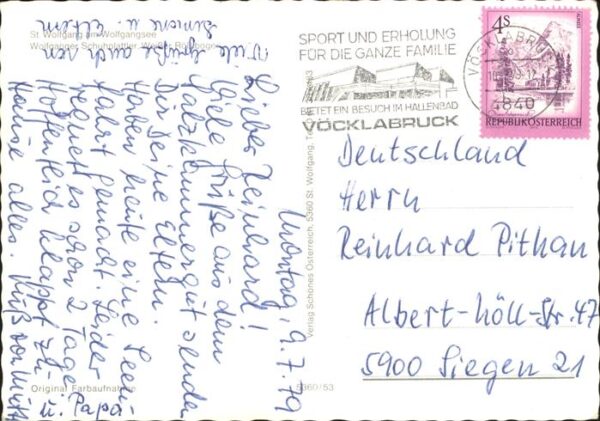 St. Wolfgang am Wolfgangsee
Wolfganger Schuhplattler
Original Farbaufnahme
Viele Grüße auch von
u. Eltern
Montag, 9.7.79
Lieber Reinhard!
Viele Grüße aus dem
Salzkammergut senden
Dir Deine Eltern.
Haben heute eine Seen-
fahrt gemacht. Leider
regnet es schon 2 Tage.
Hoffentlich klappt zu-
hause alles. Kuß von Mutti
u. Papa
Verlag Schönes Österreich, 5360 St. Wolfgang,
5360/53
SPORT UND ERHOLUNG
FÜR DIE GANZE FAMILIE
BIETET EIN BESUCH IM HALLENBAD
VÖCKLABRUCK
VÖCKLABRUCK
4840
4S
REPUBLIK ÖSTERREICH
Deutschland
Herrn
Reinhard Pithan
Albert-Höll-Str. 47
5900 Siegen 21